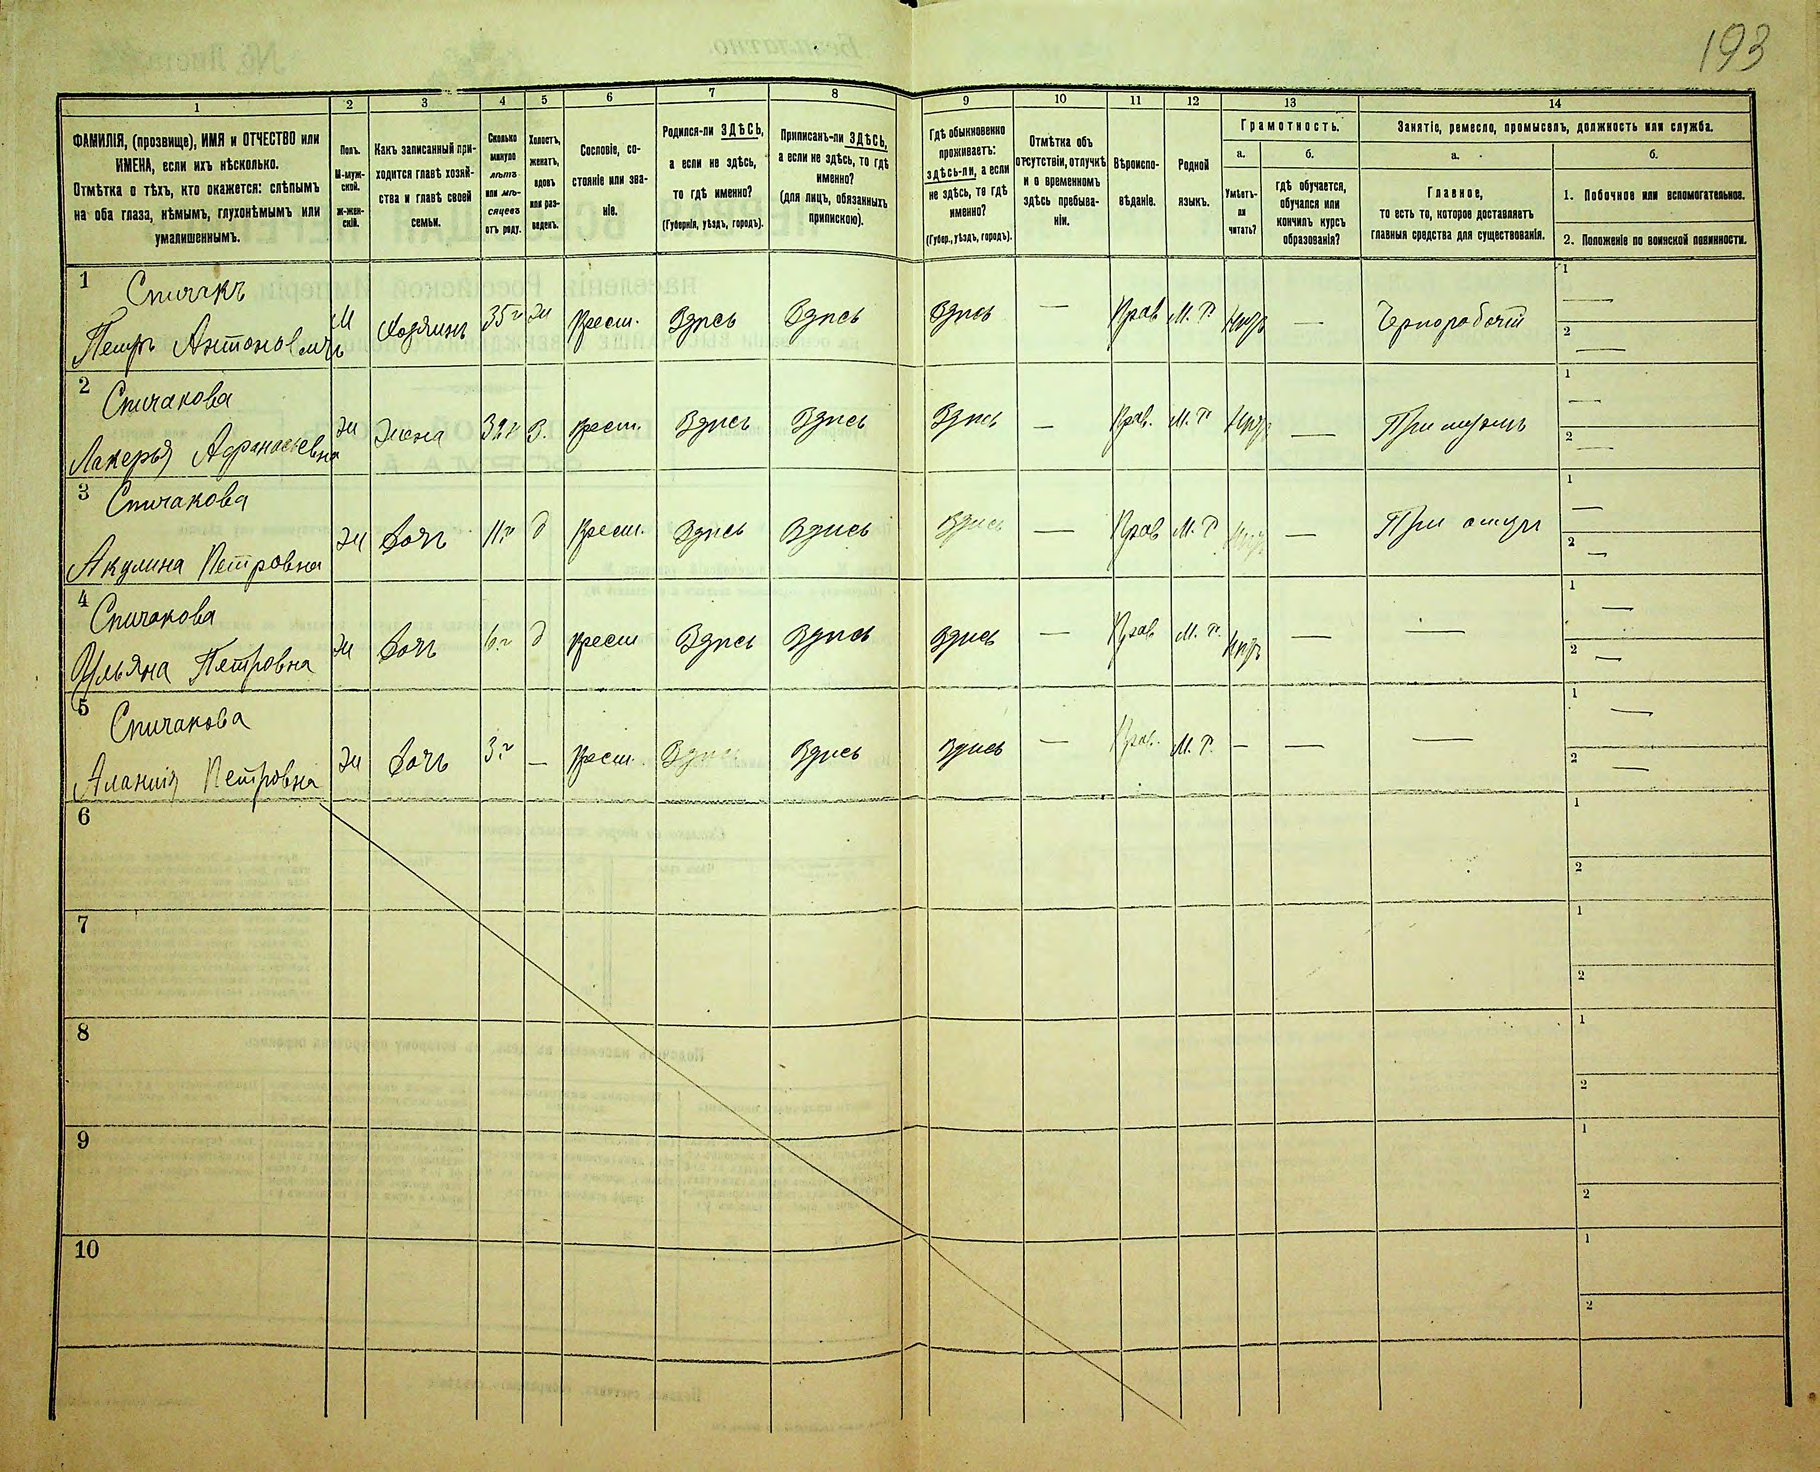 193
1 2 3 4 5 6 7 8 9 10 11 12 13 14
ФАМИЛІЯ, (прозвище), ИМЯ и ОТЧЕСТВО или
ИМЕНА, если ихъ нѣсколько.
Отмѣтка о тѣхъ, кто окажется: слѣпымъ
на оба глаза, нѣмымъ, глухонѣмымъ или
умалишеннымъ.
Полъ.
М-муж-
ской.
Ж-жен-
скій.
Какъ записанный при-
ходится главѣ хозяй-
ства и главѣ своей
семьи.
Сколько
минуло
лѣтъ
или мѣ-
сяцевъ
отъ роду.
Холостъ,
женатъ,
вдовъ
или раз-
веденъ.
Сословіе, со-
стояніе или зва-
ніе.
Родился-ли ЗДѢСЬ,
а если не здѣсь,
то гдѣ именно?
(Губернія, уѣздъ, городъ).
Приписанъ-ли ЗДѢСЬ,
а если не здѣсь, то гдѣ
именно?
(для лицъ, обязанныхъ
припискою).
Гдѣ обыкновенно
проживаетъ:
здѣсь-ли, а если
не здѣсь, то гдѣ
именно?
(Губер., уѣздъ, городъ).
Отмѣтка объ
отсутствіи, отлучкѣ
и о временномъ
здѣсь пребыва-
ніи.
Вѣроиспо-
вѣданіе.
Родной
языкъ.
Грамотность.
а.
Умѣетъ-
ли
читать?
б.
гдѣ обучается,
обучался или
кончилъ курсъ
образованія?
Занятіе, ремесло, промыселъ, должность или служба.
а.
Главное,
то есть то, которое доставляетъ
главныя средства для существованія.
б.
1. Побочное или вспомогательное.
2. Положеніе по воинской повинности.
1 Спичакъ
Петръ Антоновичъ М Хозяинъ 35 г ж Крест. Здѣсь Здѣсь Здѣсь — Прав М. Р. Нѣтъ — Чернорабочій 1 — 2 —
2 Спичакова
Лакерья Афанасьевна Ж Жена 32 г З. Крест. Здѣсь Здѣсь Здѣсь — Прав. М. Р Нѣтъ — При мужѣ 1 — 2 —
3 Спичакова
Акулина Петровна Ж Дочь 11 г д Крест. Здѣсь Здѣсь Здѣсь — Прав М. Р Нѣтъ — При отцѣ 1 — 2 —
4 Спичакова
Ульяна Петровна Ж Дочь 6 г д Крест Здѣсь Здѣсь Здѣсь — Прав М. Р. Нѣтъ — — 1 — 2 —
5 Спичакова
Петровна Ж Дочь 3 г — Крест. Здѣсь Здѣсь Здѣсь — Прав. М. Р. — — — 1 — 2 —
6 1 2
7 1 2
8 1 2
9 1 2
10 1 2